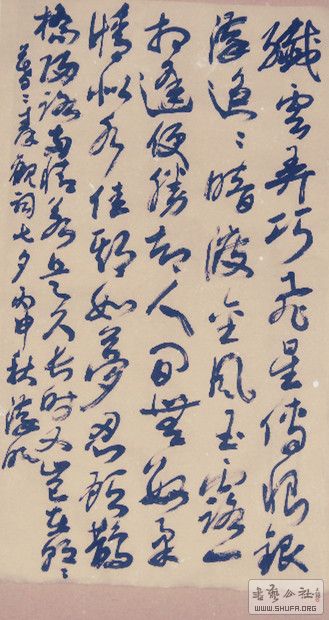 纖雲弄巧飛星傳恨銀
漢迢〻暗渡金風玉露一
相逢便勝却人間無數柔
情似水佳期如夢忍顧鵲
橋歸路兩情若是久长时又岂在朝〻
暮〻秦觀詞七夕丙申秋
书艺公社
WWW.SHUFA.ORG